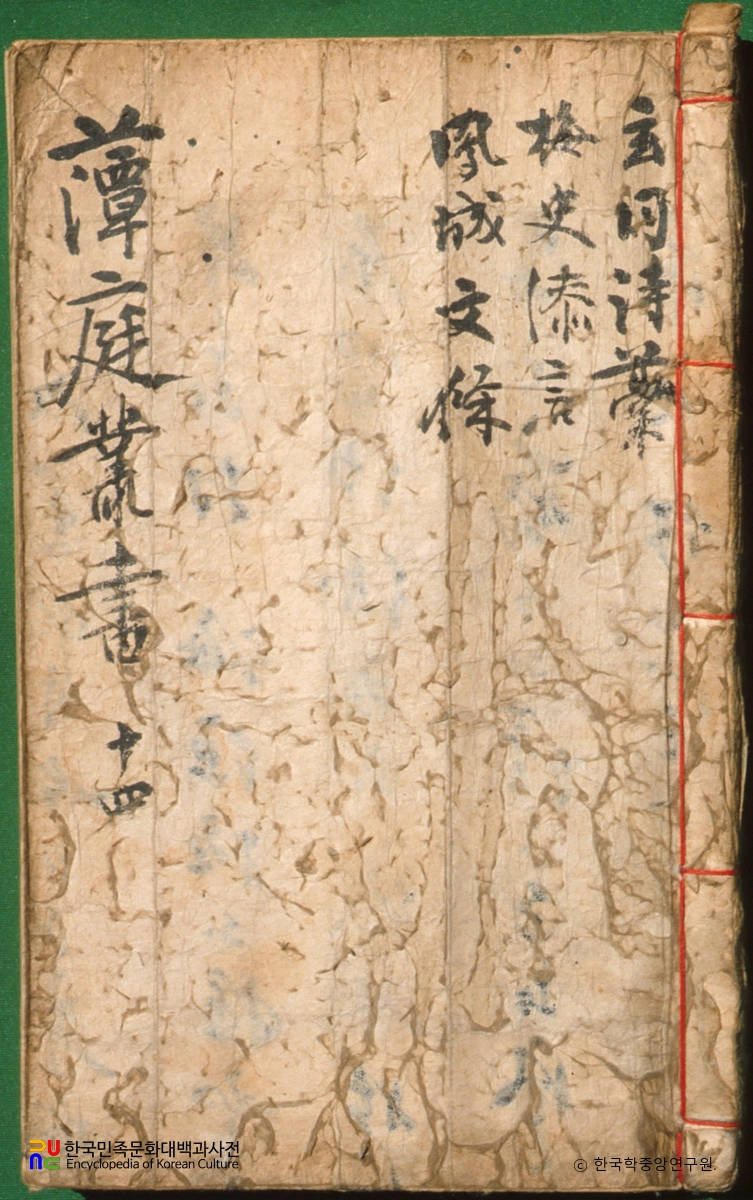 玄同詩藁
梅史添言
鳳城文餘
藫庭叢書 十四
한국민족문화대백과사전
Encyclopedia of Korean Culture
ⓒ 한국학중앙연구원.